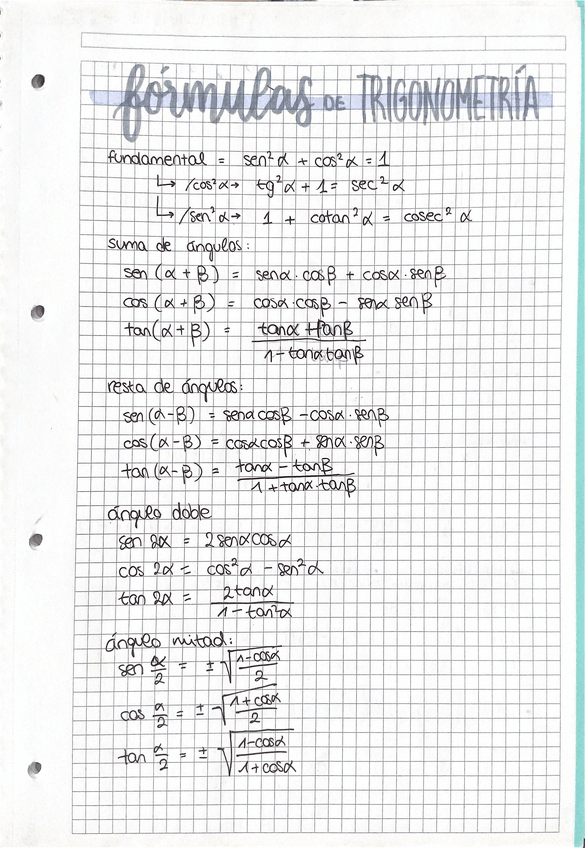 fórmulas DE TRIGONOMETRÍA
fundamental = sen²α + cos²α = 1
↳ /cos²α → tg²α + 1 = sec²α
↳ /sen²α → 1 + cotan²α = cosec²α
suma de ángulos:
sen (α + β) = senα · cosβ + cosα · senβ
cos (α + β) = cosα · cosβ − senα senβ
tan (α + β) = (tanα + tanβ) / (1 − tanα tanβ)
resta de ángulos:
sen (α − β) = senα cosβ − cosα · senβ
cos (α − β) = cosα cosβ + senα · senβ
tan (α − β) = (tanα − tanβ) / (1 + tanα · tanβ)
ángulo doble
sen 2α = 2 senα cosα
cos 2α = cos²α − sen²α
tan 2α = 2tanα / (1 − tan²α)
ángulo mitad:
sen α/2 = ± √((1 − cosα) / 2)
cos α/2 = ± √((1 + cosα) / 2)
tan α/2 = ± √((1 − cosα) / (1 + cosα))